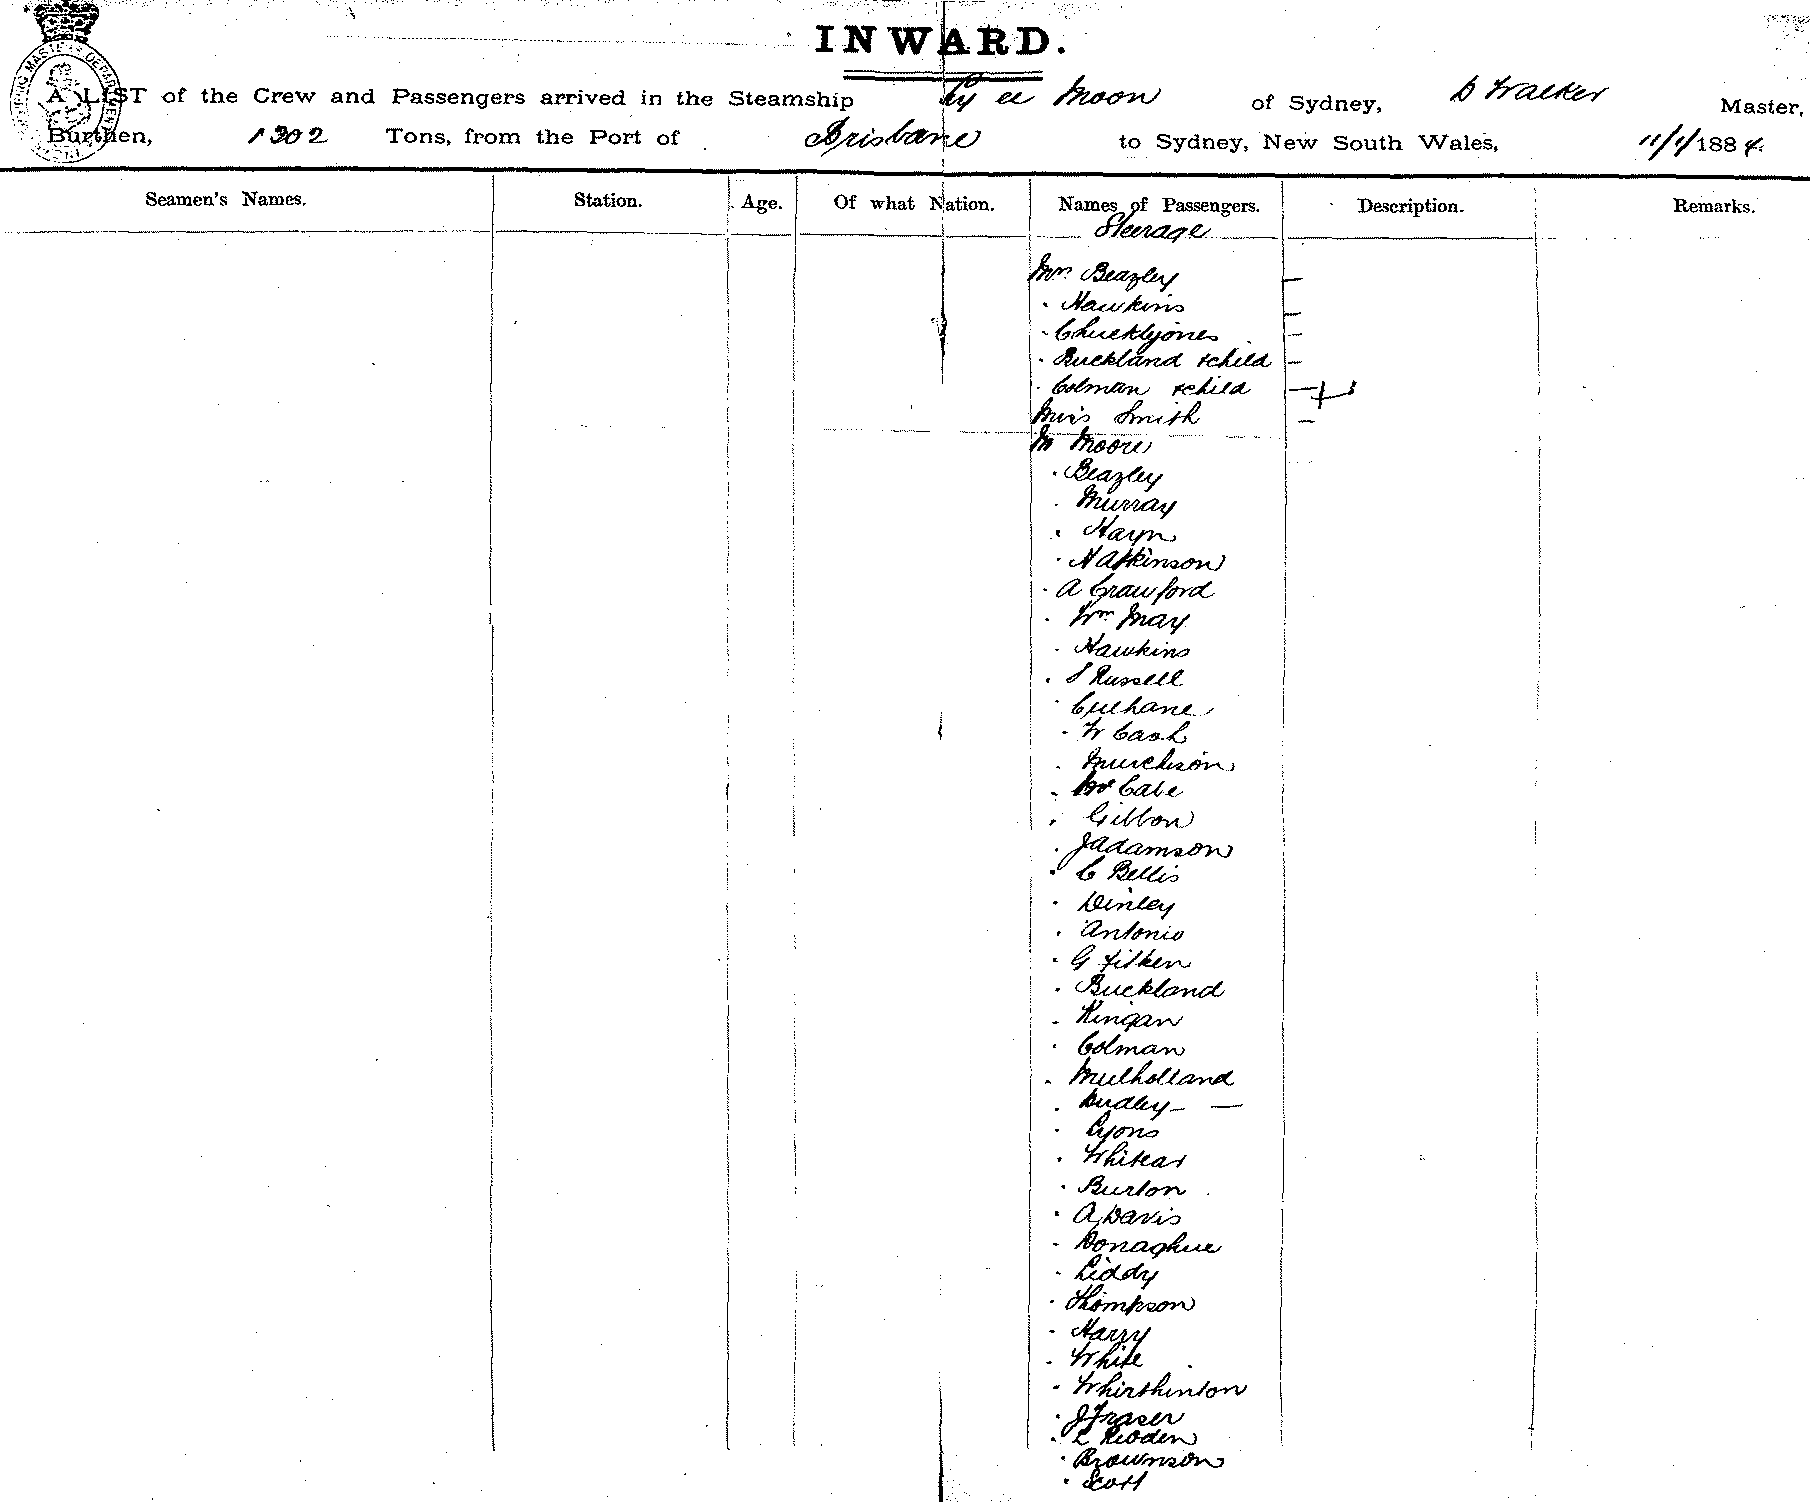 INWARD.
A LIST of the Crew and Passengers arrived in the Steamship Ly ee Moon of Sydney, D Walker Master,
Burthen, 1302 Tons, from the Port of Brisbane to Sydney, New South Wales, 11/1/1884
Seamen's Names. Station. Age. Of what Nation. Names of Passengers. Description. Remarks.
Steerage
Mrs Beazley
" Hawkins
" Buckland & child
" Colman & child
Miss Smith
Mr Moore
" Beazley
" Murray
" Hayn
" H Atkinson
" A Crawford
" Wm May
" Hawkins
" S Russell
" Culhane
" W Cash
" Murchison
" McCabe
" Gibbon
" J Adamson
" C Bellis
" Dinley
" Antonio
" G Filken
" Buckland
" Kingan
" Colman
" Mulholland
" Dudley
" Lyons
" Whitear
" Burton
" A Davis
" Donaghue
" Liddy
" Thompson
" Harry
" White
" Whirthinton
" J Fraser
" Brownson
" Scott